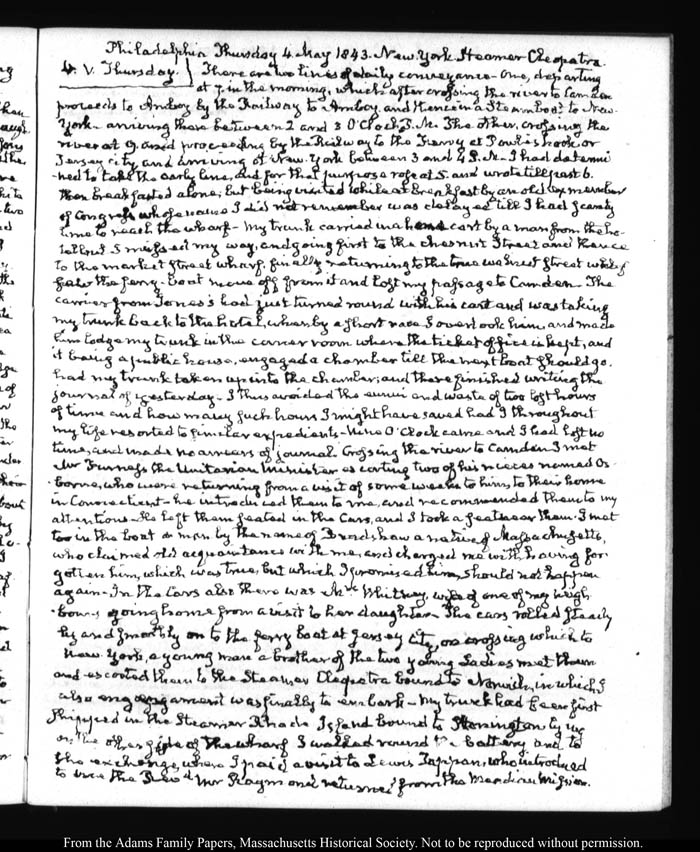 Philadelphia Thursday 4 May 1843. New York Steamer Cleopatra.
4. V. Thursday. There are two lines of daily conveyance - One, departing
at 7. in the morning, which after crossing the river to Camden
proceeds to Amboy by the Railway to Amboy, and thence in a Steam boat to New-
York - arriving there between 2 and 3 O'Clock P.M. The other, crossing the
river at 9. and proceeding by the Railway to the Ferry at Powles hook, or
Jersey city and arriving at New-York between 3 and 4 P.M. I had determi
ned to take the early line, and for that purpose rose at 5. and wrote till past 6.
then breakfasted alone; but being visited while at breakfast by an old member
of Congress whose name I did not remember was delayed till I had scanty
time to reach the wharf - My trunk carried in a cart by a man from the ho-
tel but I missed my way, and going first to the Chesnut Street and thence
to the market street wharf, finally returning to the true walnut street wharf
saw the ferry-boat move off from it and lost my passage to Camden. The
carrier from Jones's had just turned round with his cart and was taking
my trunk back to the hotel, when by a short race I overtook him and made
him lodge my trunk in the corner room where the ticket office is kept, and
it being a public house, engaged a chamber till the next boat should go.
had my trunk taken up into the chamber, and there finished writing the
journal of yesterday - I thus avoided the ennui and waste of two lost hours
of time and how many such hours I might have saved had I throughout
my life resorted to similar expedients - Nine O'Clock came and I had lost no
time, and made no arrears of journal. Crossing the river to Camden I met
Mr Furness the Unitarian Minister escorting two of his nieces named Os-
borne, who were returning from a visit of some weeks to him, to their home
in Connecticut - he introduced them to me, and recommended them to my
attentions - He left them seated in the Cars, and I took a seat near them. I met
too in the boat a man by the name of Bradshaw a native of Massachusetts,
who claimed old acquaintance with me, and charged me with having for-
gotten him, which was true, but which I promised him, should not happen
again - In the Cars also there was Mrs Whitney, wife of one of my neigh-
bours going home from a visit to her daughter. The cars rolled stead
ily and smoothly on to the ferry boat at Jersey City, on crossing which to
New York, a young man a brother of the two young Ladies met them
and escorted them to the Steamer Cleopatra bound to Norwich, in which I
also engagement was finally to embark - My trunk had been first
shipped in the Steamer Rhode Island bound to Stonington
on the other side of the wharf I walked round the battery and to
the exchange, where I paid a visit to Lewis Tappan, who introduced
to me the Revd Mr Raymond returned from the Mendian Mission.
From the Adams Family Papers, Massachusetts Historical Society. Not to be reproduced without permission.